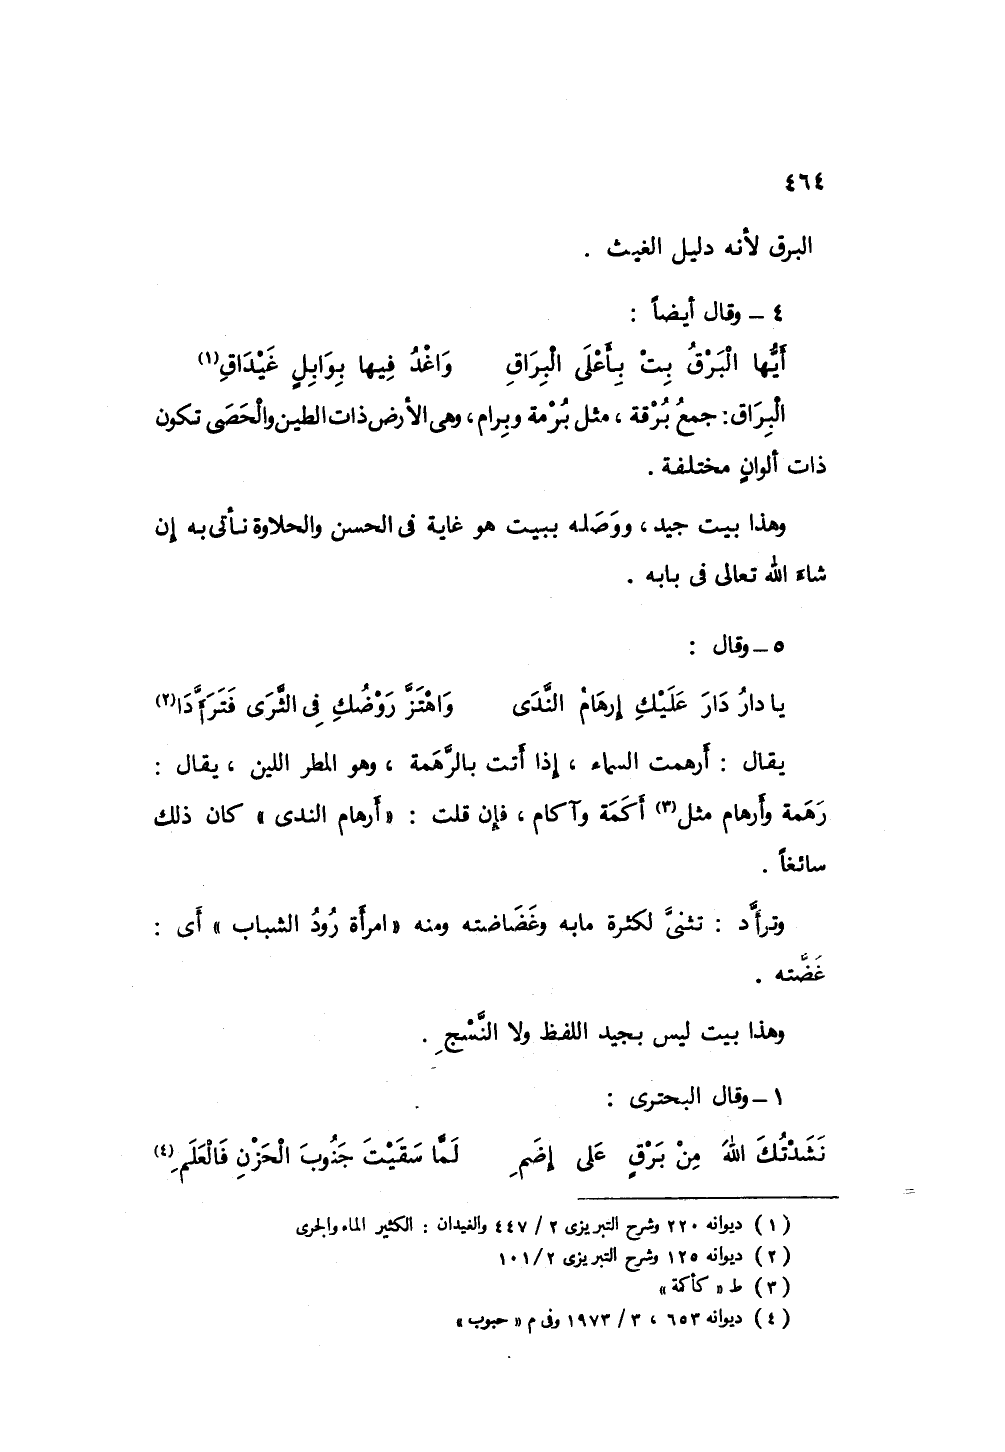 ٤٦٤
البرق لأنه دليل الغيث .
٤ – وقال أيضاً :
أَيُّها الْبَرْقُ بِتْ بِأَعْلَى الْبِرَاقِ وَاغْدُ فِيها بِوَابِلٍ غَيْدَاقِ(١)
الْبِرَاق: جمعُ بُرْقة ، مثل بُرْمة وبِرام ، وهى الأرض ذات الطين والْحَصَى تكون
ذات ألوانٍ مختلفة .
وهذا بيت جيد ، ووَصَله ببيت هو غاية فى الحسن والحلاوة نأتى به إن
شاء الله تعالى فى بابه .
٥ – وقال :
يا دارُ دَارَ عَلَيْكِ إرهَامُ النَّدَى وَاهْتَزَّ رَوْضُكِ فِى الثَّرَى فَتَرَأَّدَا(٢)
يقال : أَرهمت السماء ، إذا أتت بالرَّهَمة ، وهو المطر اللين ، يقال :
رَهَمة وأَرهام مثل(٣) أَكَمَة وآكام ، فإن قلت : « أَرهام الندى » كان ذلك
سائغاً .
وترأَّد : تثنىَّ لكثرة مابه وغَضَاضته ومنه « امرأَة رُودُ الشباب » أَى :
غَضَّته .
وهذا بيت ليس بجيد اللفظ ولا النَّسْجِ .
١ – وقال البحترى :
نَشَدْتُكَ اللهَ مِنْ بَرْقٍ عَلى إضَمِ لَمَّا سَقَيْتَ جَنُوبَ الْحَزْنِ فَالْعَلَمِ(٤)
(١) ديوانه ٢٢٠ وشرح التبريزى ٢ / ٤٤٧ والغيدان : الكثير الماء والجرى
(٢) ديوانه ١٢٥ وشرح التبريزى ١٠١/٢
(٣) ط « كأكمة »
(٤) ديوانه ٦٥٣ ، ٣ / ١٩٧٣ وفى م « حبوب »